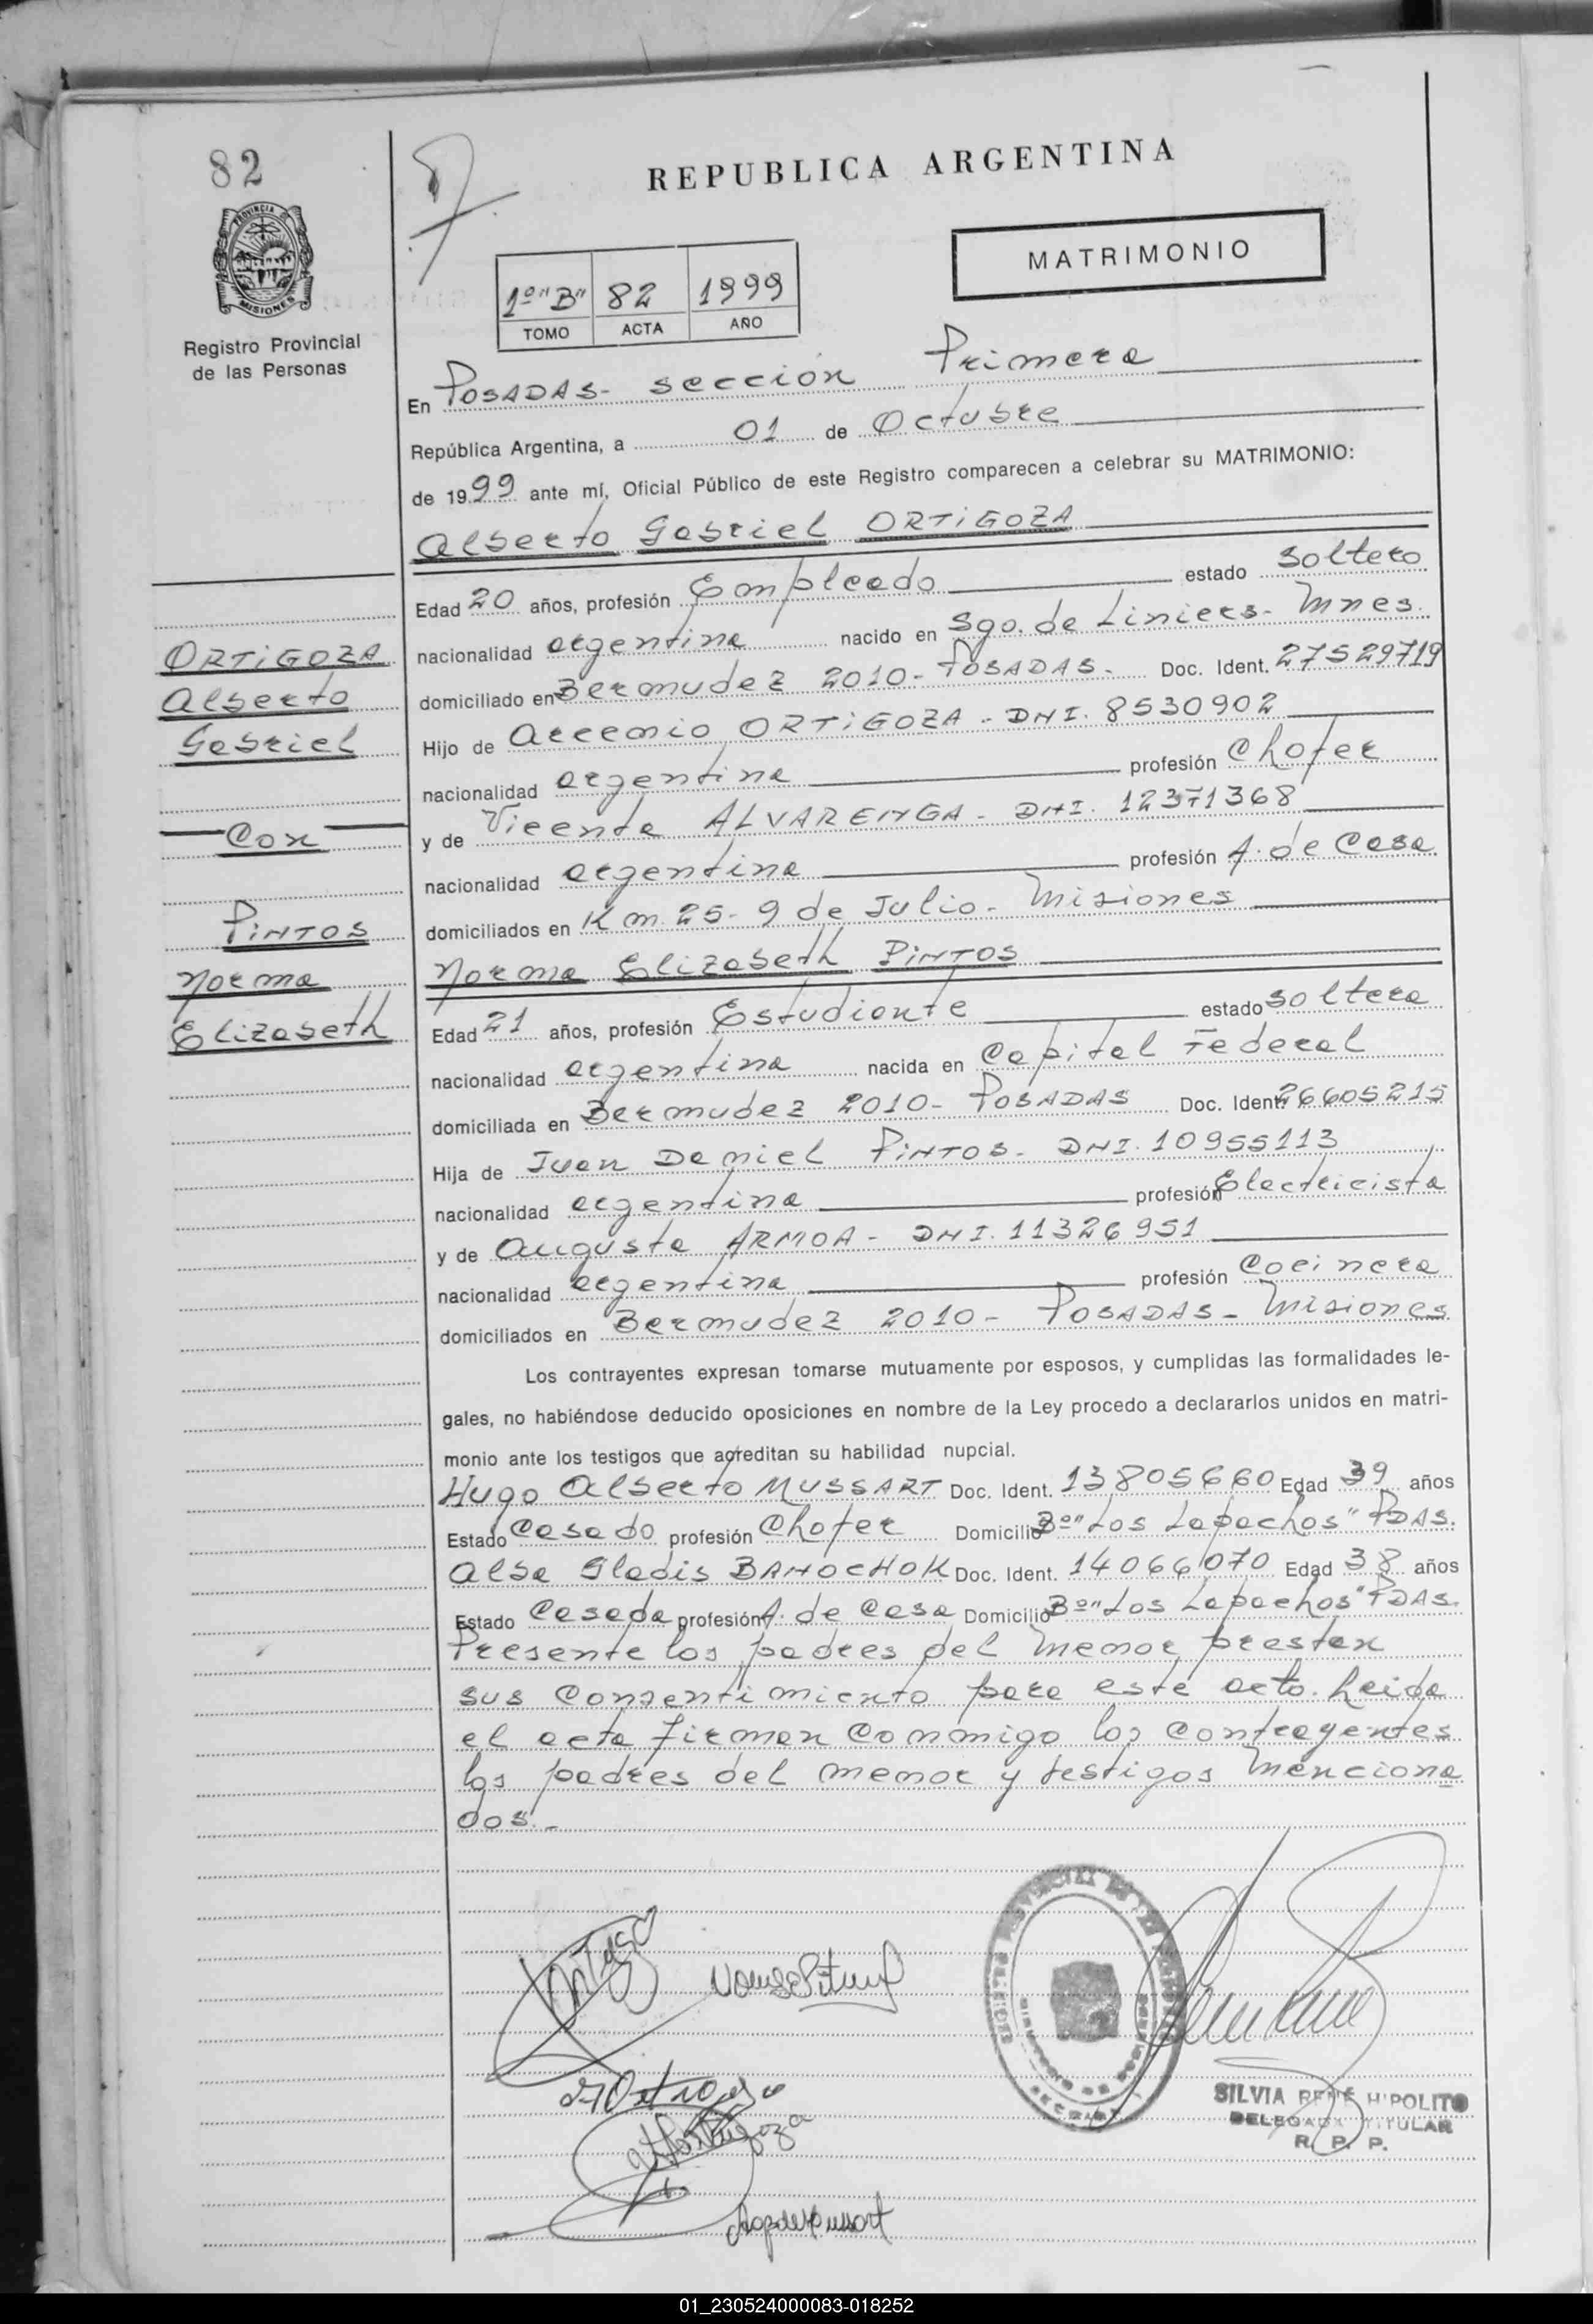 82
REPUBLICA ARGENTINA
PROVINCIA DE
MISIONES
MATRIMONIO
1º "B" 82 1999
TOMO ACTA AÑO
Registro Provincial
de las Personas
En POSADAS- sección Primera
República Argentina, a 01 de Octubre
de 1999 ante mí, Oficial Público de este Registro comparecen a celebrar su MATRIMONIO:
Alberto Gabriel ORTIGOZA
Edad 20 años, profesión Empleado estado soltero
nacionalidad argentina nacido en Sgo. de Liniers- Mnes.
ORTIGOZA
Alberto
Gabriel
domiciliado en Bermudez 2010- POSADAS- Doc. Ident. 27529719
Hijo de Arcenio ORTIGOZA - DNI. 8530902
nacionalidad argentina profesión Chofer
Con
y de Vicenta ALVARENGA - DNI. 12371368
nacionalidad argentina profesión A. de Casa
domiciliados en Km. 25- 9 de Julio- Misiones
PINTOS
Norma
Elizabeth
Norma Elizabeth PINTOS
Edad 21 años, profesión Estudiante estado soltera
nacionalidad argentina nacida en Capital Federal
domiciliada en Bermudez 2010- POSADAS Doc. Ident. 26605215
Hija de Juan Daniel PINTOS- DNI. 10955113
nacionalidad argentina profesión Electricista
y de Augusta ARMOA - DNI. 11326951
nacionalidad argentina profesión Cocinera
domiciliados en Bermudez 2010- POSADAS- Misiones
Los contrayentes expresan tomarse mutuamente por esposos, y cumplidas las formalidades le-
gales, no habiéndose deducido oposiciones en nombre de la Ley procedo a declararlos unidos en matri-
monio ante los testigos que acreditan su habilidad nupcial.
Hugo Alberto MUSSART Doc. Ident. 13805660 Edad 39 años
Estado Casado profesión Chofer Domicilio Bº "Los Lapachos" PDAS.
Alba Gladis BANOCHOK Doc. Ident. 14066070 Edad 38 años
Estado Casada profesión A. de Casa Domicilio Bº "Los Lapachos" PDAS.
Presente los padres del menor prestan
sus consentimiento para este acto. Leida
el acta firman conmigo los contrayentes
los padres del menor y testigos menciona
dos.-
SILVIA RENÉ HIPOLITO
DELEGADA TITULAR
R. P. P.
01_230524000083-018252